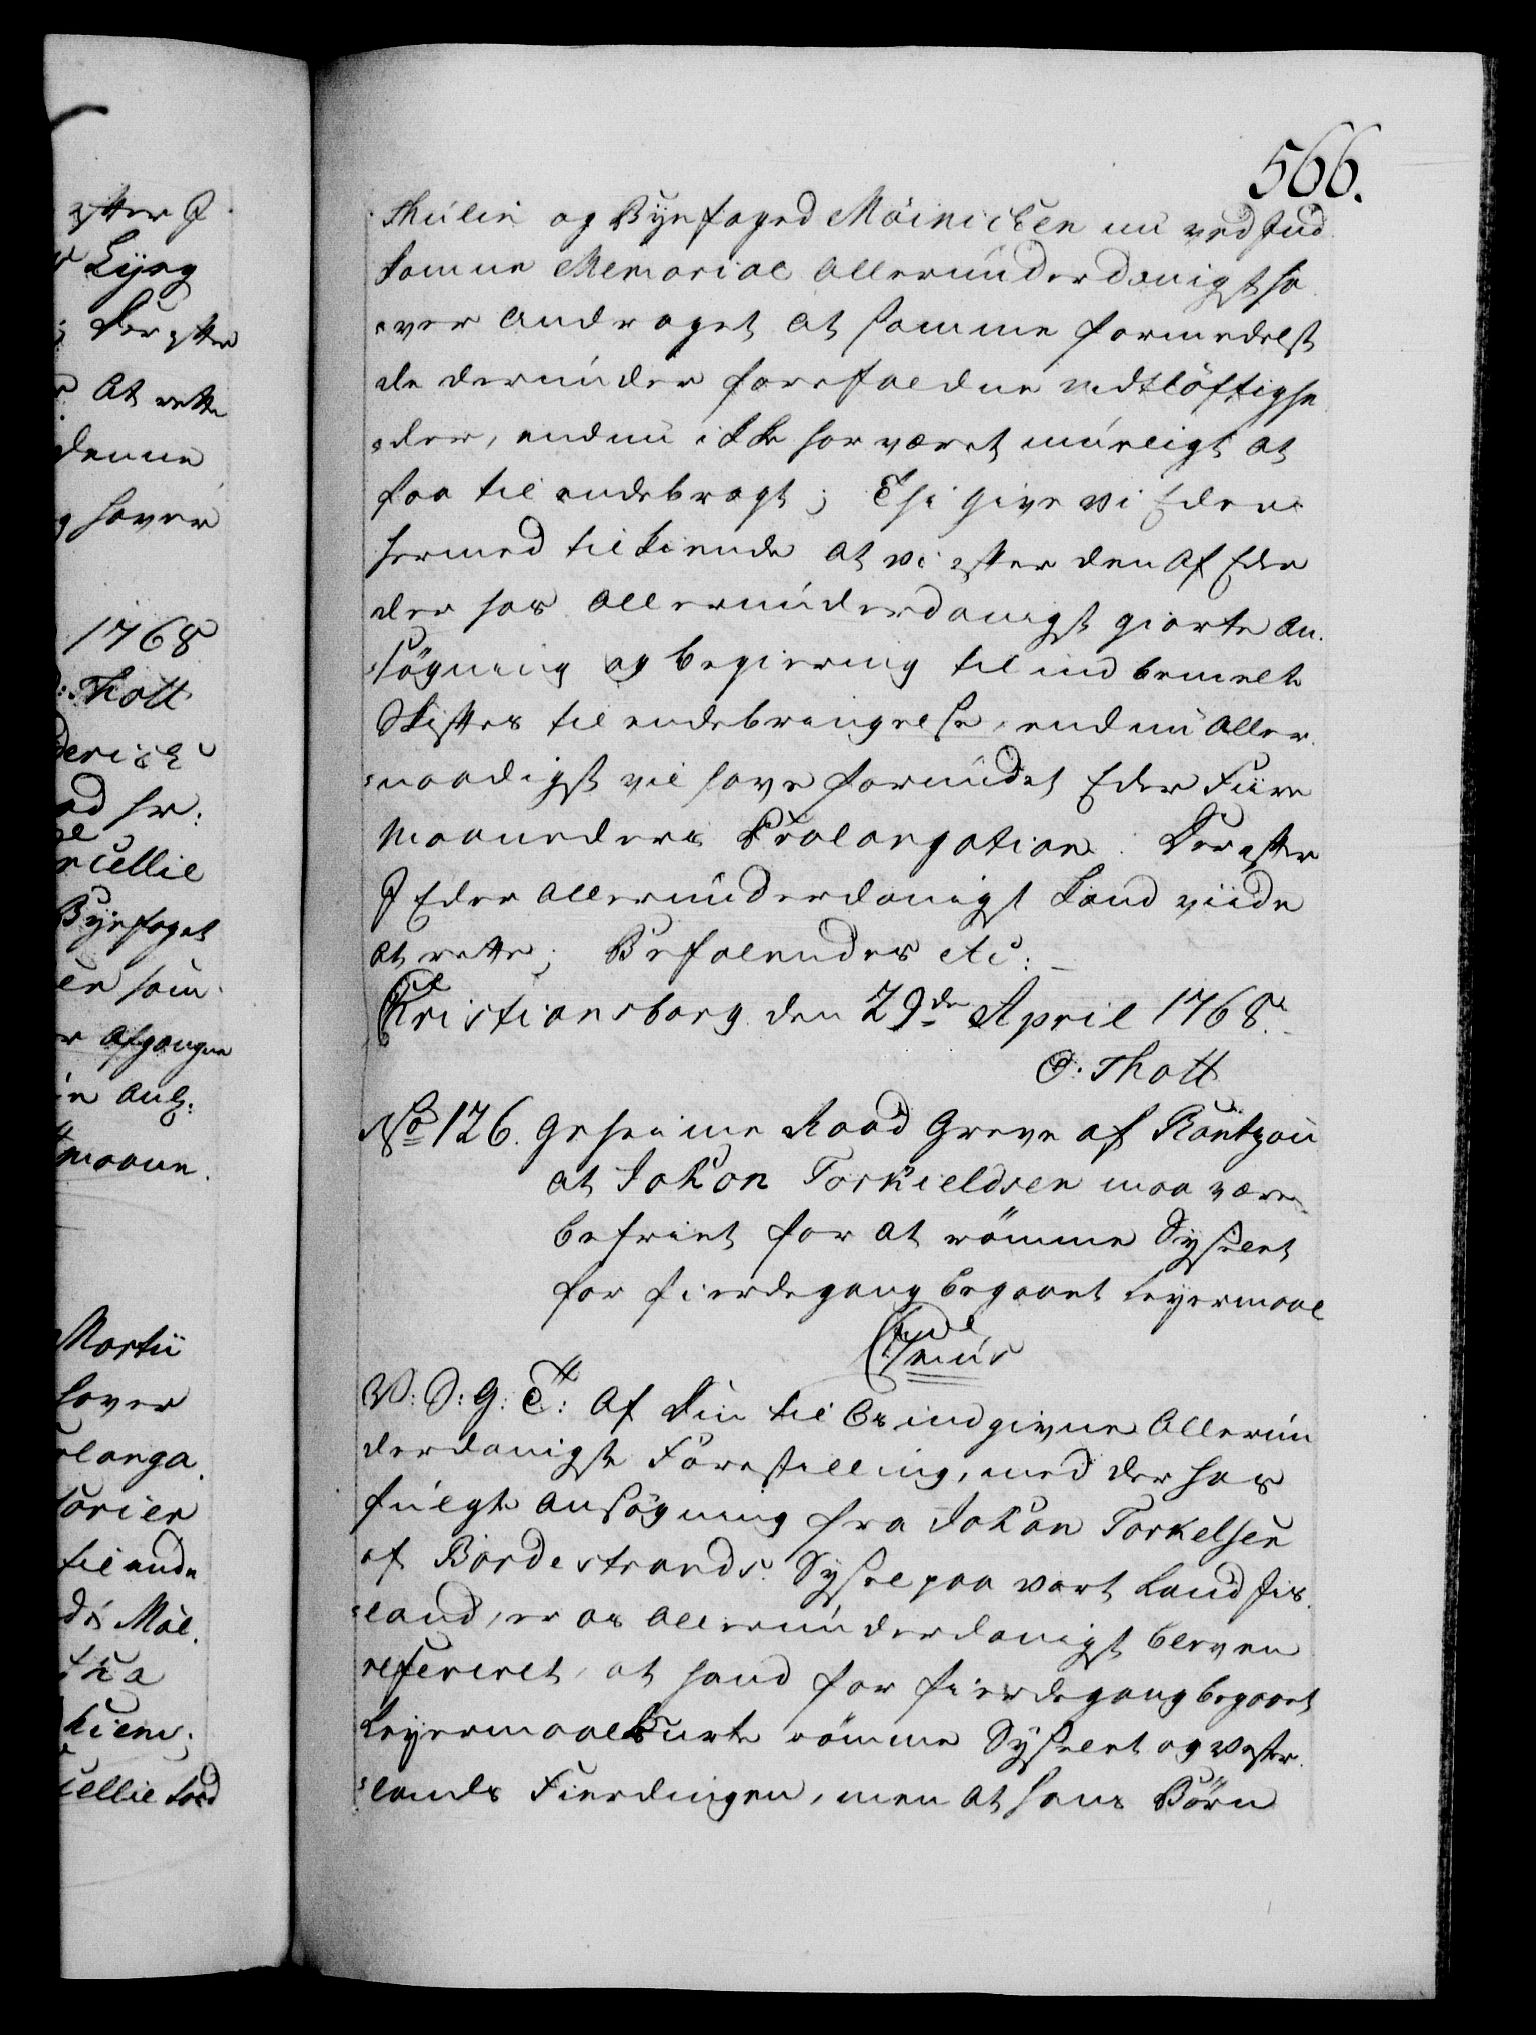 566.
Thulin og Byefoged Möinichen nu ved Ind
komne Memorial allerunderdanigst ha
=ver andraget at samme formedelst
de derunder forefaldne vidtlöftighe
=der, endnu ikke har været mueligt at
faa til endebragt; Thi give vi Eder
hermed tilkiende at vi efter den af Eder
der hos allerunderdanigst giorte An-
=sögning og begiering til indbemelte
Skiftes til endebringelse, endnu aller-
=naadigst vil have forundt Eder Fiire
Maaneders Prolongation. Derefter
I Eder allerunderdanigst haver viide
at rette; Befalendes etc:
Christiansborg den 29de April 1768.
O: Thott
No 126. Geheime Raad Greve af Rantzou
at Johan Torkieldsen maa være
befriet for at römme Syslet
for fierdegang begaaet Leyermaal
V: S: G: T: Af Din til Os indgivne Allerun
derdanigste Forestilling, med der hos
fulgte Ansögning fra Johan Torkelsen
af Bardestrands Syssel paa vort Land Iis-
=land, er os allerunderdanigst bleven
refereret, at hand for fierdegang begaaet
Leyermaal burte römme Syslet og Vester-
=lands Fierdingen, men at hans Börn
efter I
Lyng
derefter
at rette
denne
haver
1768
Thott
Byefoget
som
afgangne
Martii
haver
til ende